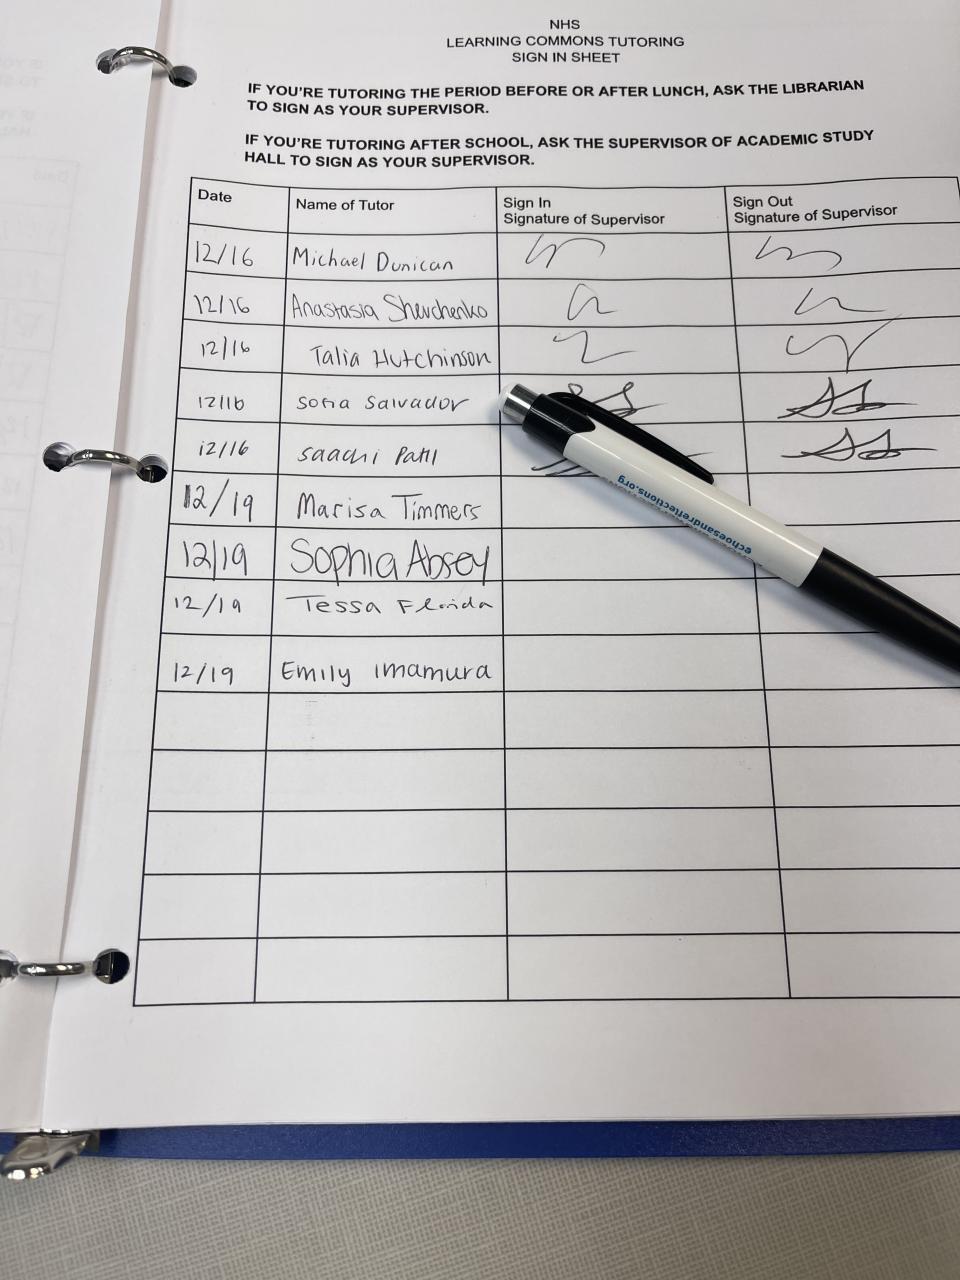 NHS
LEARNING COMMONS TUTORING
SIGN IN SHEET
IF YOU'RE TUTORING THE PERIOD BEFORE OR AFTER LUNCH, ASK THE LIBRARIAN
TO SIGN AS YOUR SUPERVISOR.
IF YOU'RE TUTORING AFTER SCHOOL, ASK THE SUPERVISOR OF ACADEMIC STUDY
HALL TO SIGN AS YOUR SUPERVISOR.
Date Name of Tutor Sign In Sign Out
Signature of Supervisor Signature of Supervisor
12/16 Michael Dunican
12/16 Anastasia Shevchenko
12/16 Talia Hutchinson
12/16 Sofia Salvador
12/16 Saachi Patil
12/19 Marisa Timmers
12/19 Sophia Absey
12/19 Tessa Florida
12/19 Emily Imamura
echoesandreflections.org